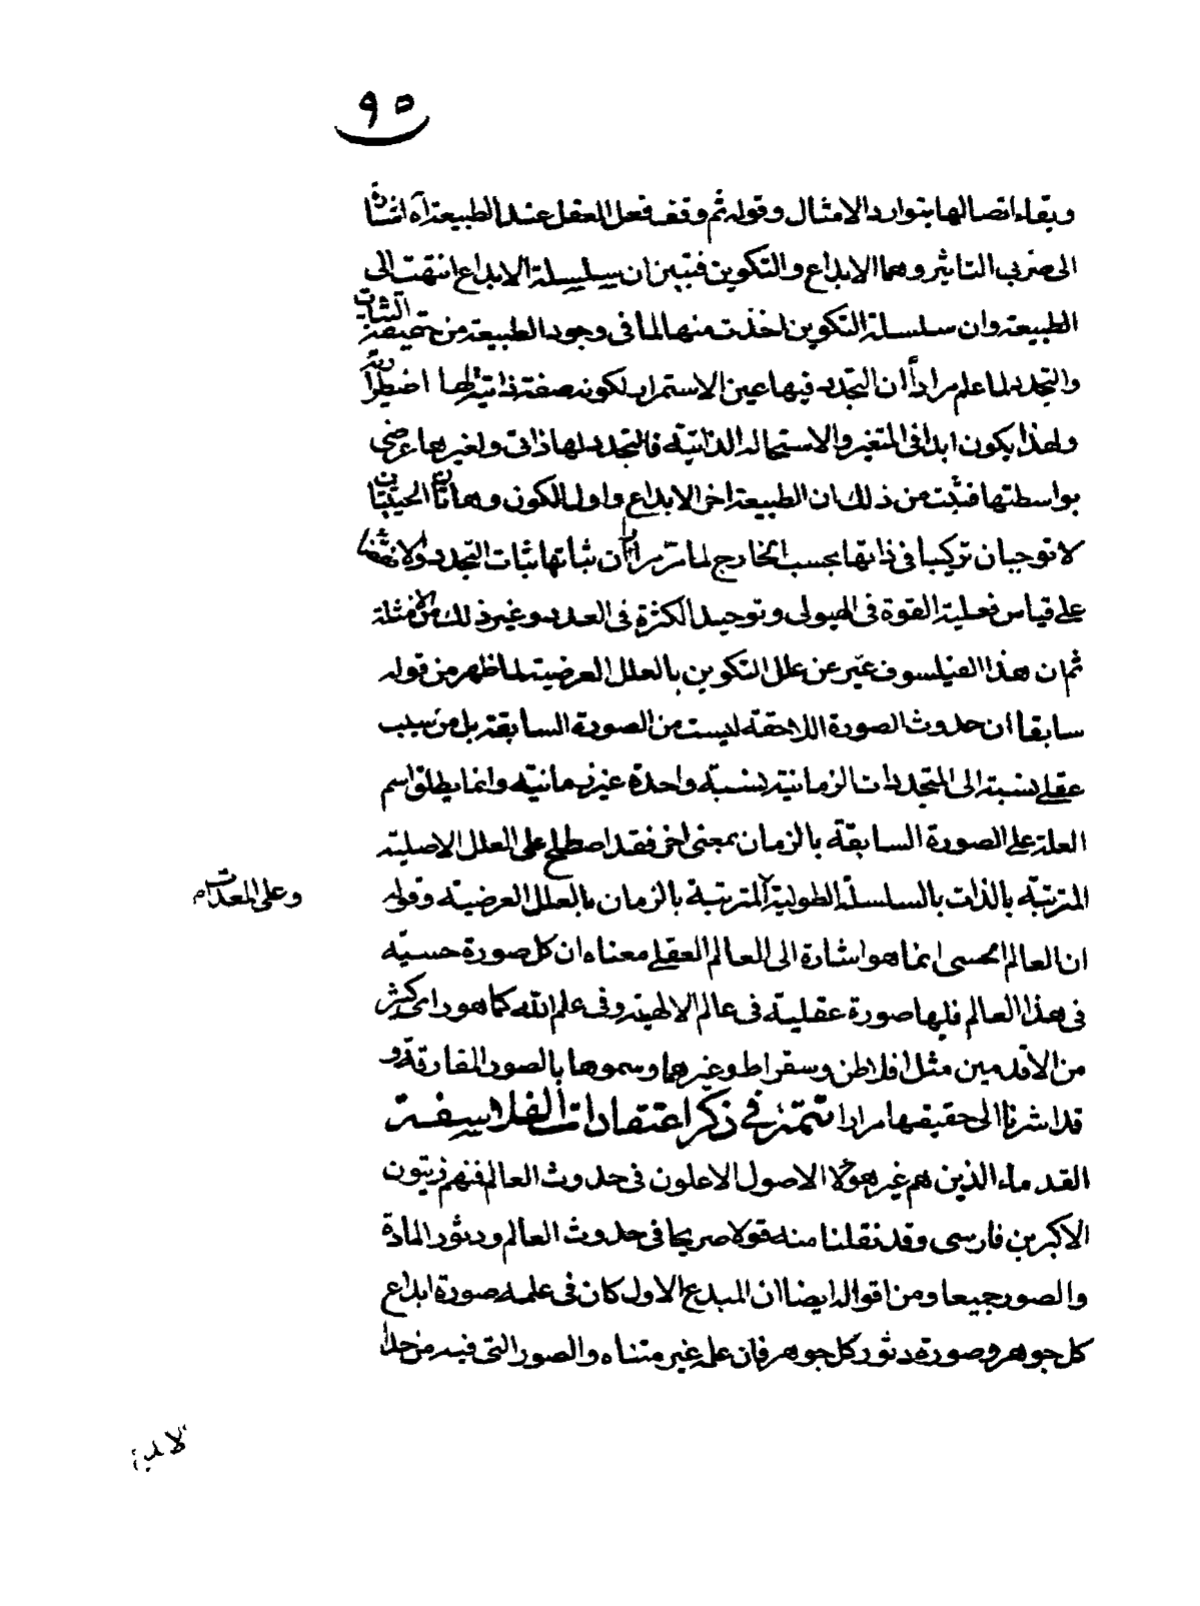 ٩٥
وبقاء اتصالها بتوارد الامثال وقوله ثم وقف فعل العقل عند الطبيعة آه اشارة
الى ضربى التاثير وهما الابداع والتكوين فتبين ان سلسلة الابداع انتهت الى
الطبيعة وان سلسلة التكوين اخذت منها لما فى وجود الطبيعة من حقيقة الثبات
والتجدد لما علم مراراً ان التجدد فيها عين الاستمرار لكونه صفة ذاتية لها اضطرارية
ولهذا يكون ابدا فى التغير والاستحالة الذاتية فالتجدد لها ذاتى ولغيرها عرضى
بواسطتها فثبت من ذلك ان الطبيعة اخر الابداع واول الكون وهاتان الحيثيتان
لا توجبان تركيبا فى ذاتها بحسب الخارج لما مرّ مراراً ان ثباتها ثبات التجدد والانقضاء
على قياس فعلية القوة فى الهيولى وتوحيد الكثرة فى العدد وغير ذلك من الامثلة
ثم ان هذا الفيلسوف عبّر عن علل التكوين بالعلل العرضية لما ظهر من قوله
سابقا ان حدوث الصورة اللاحقة ليست من الصورة السابقة بل من سبب
عقلى نسبة الى المتجددات الزمانية نسبة واحدة غير زمانية وانما يطلق اسم
العلة على الصورة السابقة بالزمان بمعنى اخر فقد اصطلح على العلل الاصلية
المترتبة بالذات بالسلسلة الطولية المترتبة بالزمان بالعلل العرضية وقوله
وعلى المعدات م
ان العالم الحسى انما هو اشارة الى العالم العقلى معناه ان كل صورة حسيّة
فى هذا العالم فلها صورة عقلية فى عالم الالهية وفى علم الله كما هو راى كثير
من الاقدمين مثل افلاطن وسقراط وغيرهما وسموها بالصور المفارقة و
قد اشرنا الى حقيقتها مرارا تتمة فى ذكر اعتقادات الفلاسفة
القدماء الذين هم غير هؤلاء الاصول الاعلون فى حدوث العالم فمنهم زيتون
الاكبر بن فارسى وقد نقلنا منه قولا صريحا فى حدوث العالم ودثور المادة
والصور جميعا ومن اقواله ايضا ان المبدع الاول كان فى علمه صورة ابداع
كل جوهر وصورة دثور كل جوهر فان علمه غير متناه والصور التى فيه من حد ا